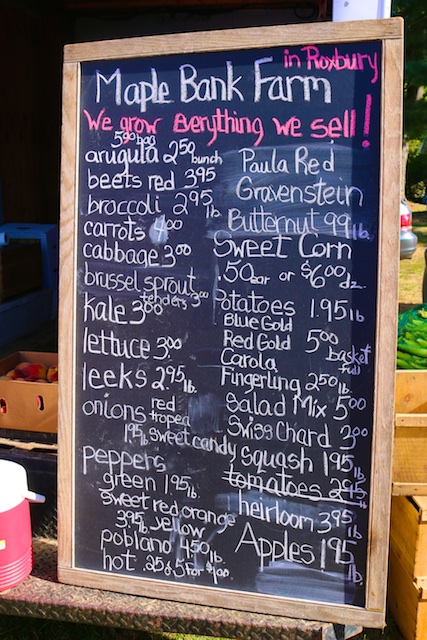 in Roxbury
Maple Bank Farm
We grow everything we sell!
5.00 bag
arugula 2.50 bunch
beets red 3.95
broccoli 2.95 lb.
carrots 4.00
cabbage 3.00
brussel sprout
tenders 3.00
Kale 3.00
lettuce 3.00
leeks 2.95 lb.
onions red
tropea
1.95 lb. sweet candy
peppers
green 1.95 lb.
sweet red, orange
3.95 lb. yellow
poblano 4.50 lb.
hot .25 or 5 for $1.00
Paula Red
Gravenstein
Butternut .99 lb.
Sweet Corn
.50 ear or $6.00 dz.
Potatoes 1.95 lb
Blue Gold
Red Gold 5.00
basket
full
Carola
Fingerling 2.50 lb.
Salad Mix 5.00
Swiss Chard 3.00
Squash 1.95 lb
tomatoes 2.95 lb
heirloom 3.95 lb
Apples 1.95 lb.